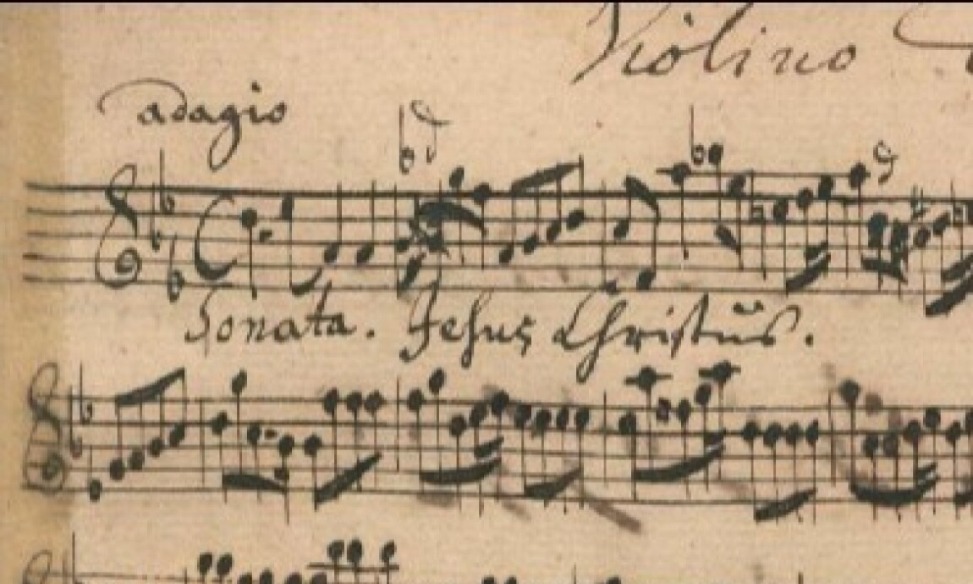 Violino
adagio
Sonata. Jesus Christus.